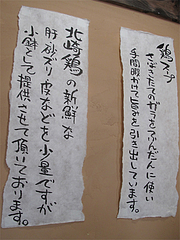 鶏スープ
さばきたてのガラをふんだんに使い
手間暇かけて旨みを引き出しています。
北崎鶏の新鮮な
肝・砂ズリ・皮などを少量ですが
小鉢として提供させて頂いております。